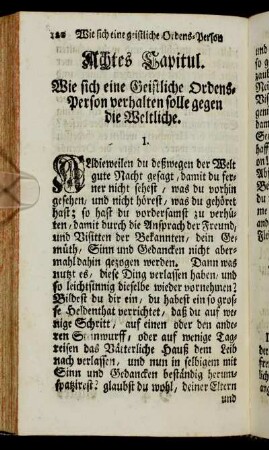 122 Wie sich eine geistliche Ordens-Person
Achtes Capitul.
Wie sich eine Geistliche Ordens-
Person verhalten solle gegen
die Weltliche.
I.
Alldieweilen du deßwegen der Welt
gute Nacht gesagt, damit du fer-
ner nicht sehest, was du vorhin
gesehen, und nicht hörest, was du gehöret
hast; so hast du vordersamst zu verhü-
ten, damit durch die Ansprach der Freund,
und Visitten der Bekannten, dein Ge-
müth, Sinn und Gedancken nicht aber-
mahl dahin gezogen werden. Dann was
nutzt es, diese Ding verlassen haben, und
so leichtsinnig dieselbe wieder vornehmen?
Bildest du dir ein, du habest ein so gros-
se Heldenthat verrichtet, daß du auf we-
nige Schritt, auf einen oder den ande-
ren Steinwurff, oder auf wenige Tag-
reisen das Vätterliche Hauß dem Leib
nach verlassen, und nun in selbigem mit
Sinn und Gedancken beständig herum-
spatzirest? glaubst du wohl, deiner Eltern
und